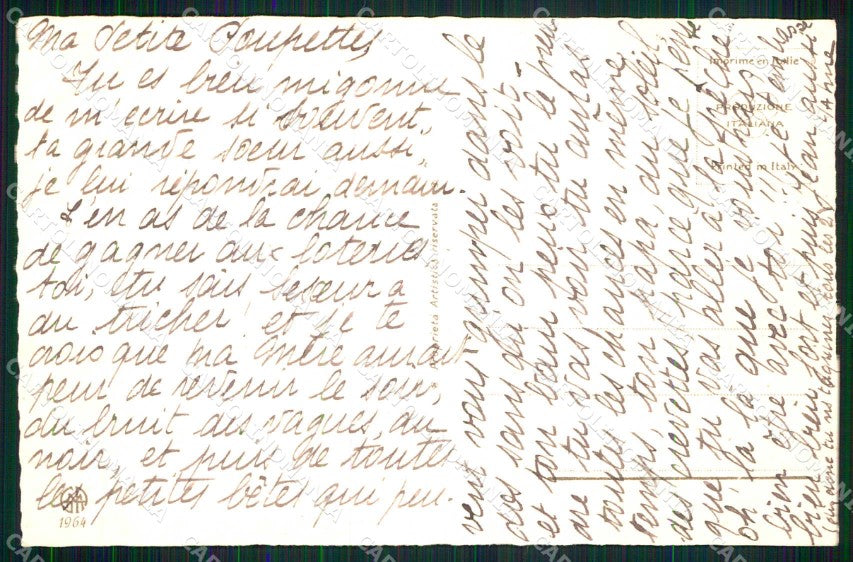 Ma Petite Poupette,
Tu es bien migonne
de m'écrire si souvent,
ta grande soeur aussi,
je lui répondrai demain.
T'en as de la chance
de gagner aux loteries
toi, tu sais
du tricher ! et je te
crois que ma Mère aurait
peur de revenir le soir,
du bruit des vagues, au
noir, et puis de toutes
les petites bêtes qui peu-
vent vous grimper dans le
dos sans qu'on les voit-
et ton bain peux tu le pren
dre tu vas venir tu auras
toutes les chances en même
temps, ton papa, du soleil
des crevettes, parce que je pense
que tu vas aller à la pêche
oh la la que je voudrais
bien être avec toi !!! je t'embrasse
bien bien fort et puis Jean aussi
1964
Proprietà Artistica riservata
Imprimé en Italie
PRODUZIONE
ITALIANA
Printed in Italy
CARTOLINOMANIA